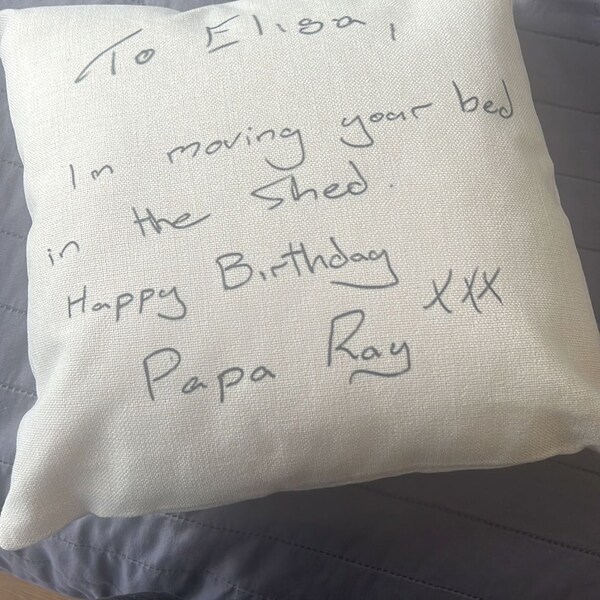 To Elisa,
Im moving your bed
in the shed.
Happy Birthday
Papa Ray xxx